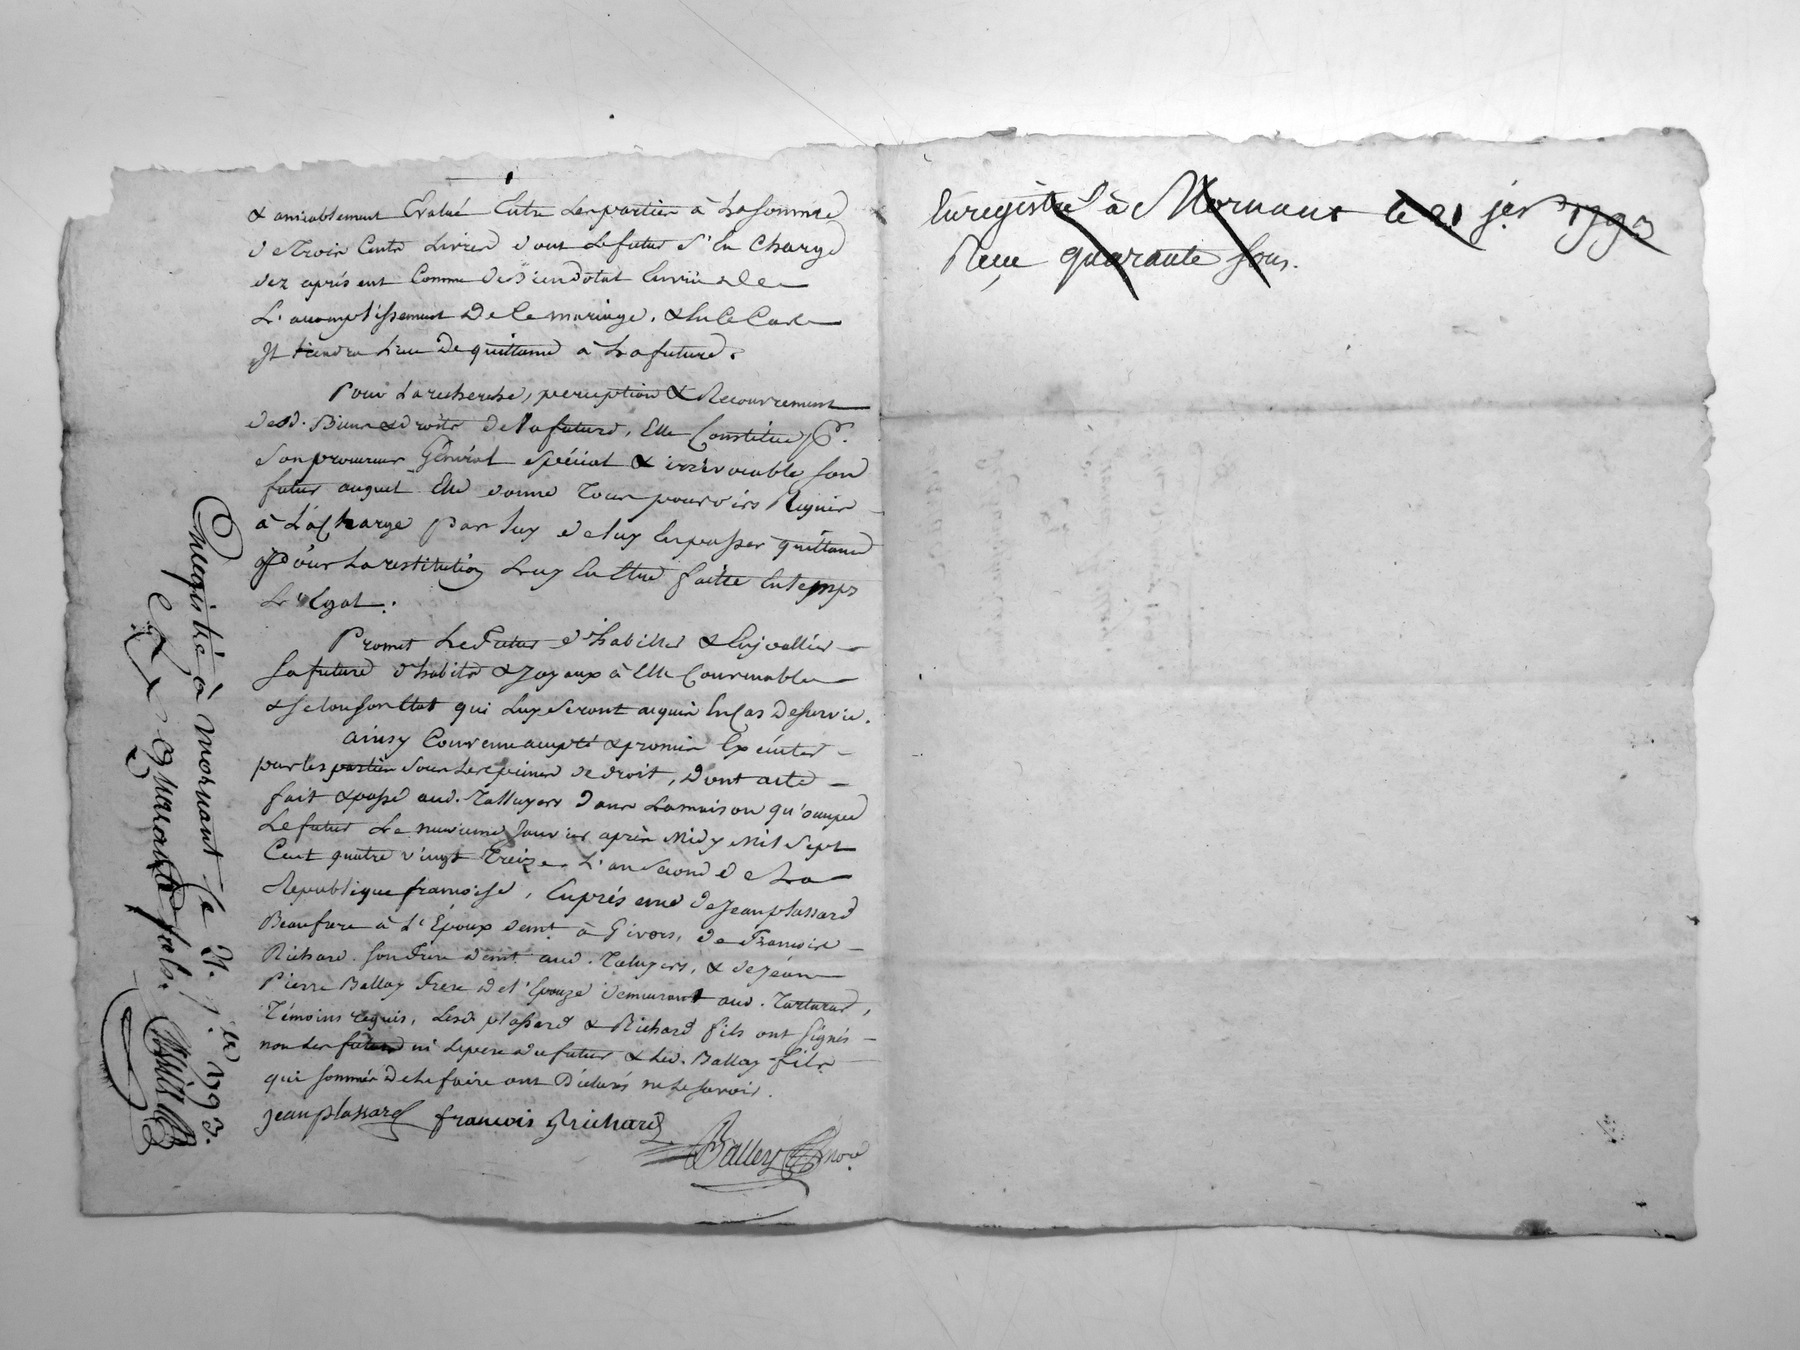 & amiablement Evalué Entre Les parties à La Somme
de Trois Cents Livres dont Le futur S'En Charge
dez aprésent Comme de Bien dotal En viie de
L'accomplissement De Ce mariage. & En Ce Cas
Il tiendra Lieu De quittance à La future.
Pour La recherche, perception & Recouvrement
desd. Biens & droits De la future, Elle Constitue pr.
Son procureur Général Spécial & irrévocable Son
futur auquel Elle donne Tous pouvoirs Requis
à La Charge par luy de luy En passer quittance
pour La restitution Luy En Etre faitte En temps
Légal.
Promet Le Futur d'habiller & Enjoallier
Sa future d'habits & Joyaux à Elle Convenables
& Selon Son Etat qui Luy Seront acquis En Cas De Survie.
ainsy Convenu accepté & promis Exécuter
par les parties Sous Les peines de droit, Dont acte
fait & passé aud. Talluyers Dans La maison qu'occupe
Le futur Le neuvieme Janvier après Midy Mil Sept
Cent quatre Vingt Treize L'an Second de La
République françoise, En présence de Jean plassard
Beaufrere à L'Epoux demt. à Givors, de François
Richard Son Frere demt. aud. Taluyers, & de Jean
Pierre Ballay Frere De l'Epouze demeurant aud. Tartaras,
Témoins requis, Lesd. plassard & Richard fils ont Signés
non Les futurs ni Le pere du futur & Led. Ballay fils
qui Sommés De Le faire ont Déclarés ne Le Savoir.
jean plassard françois Richard
Balley nore.
Enregistré à Mornant le 21. jer. 1793.
quarante sols.
Enregistré à Mornant le 21 jer. 1793
Reçu quarante sous.